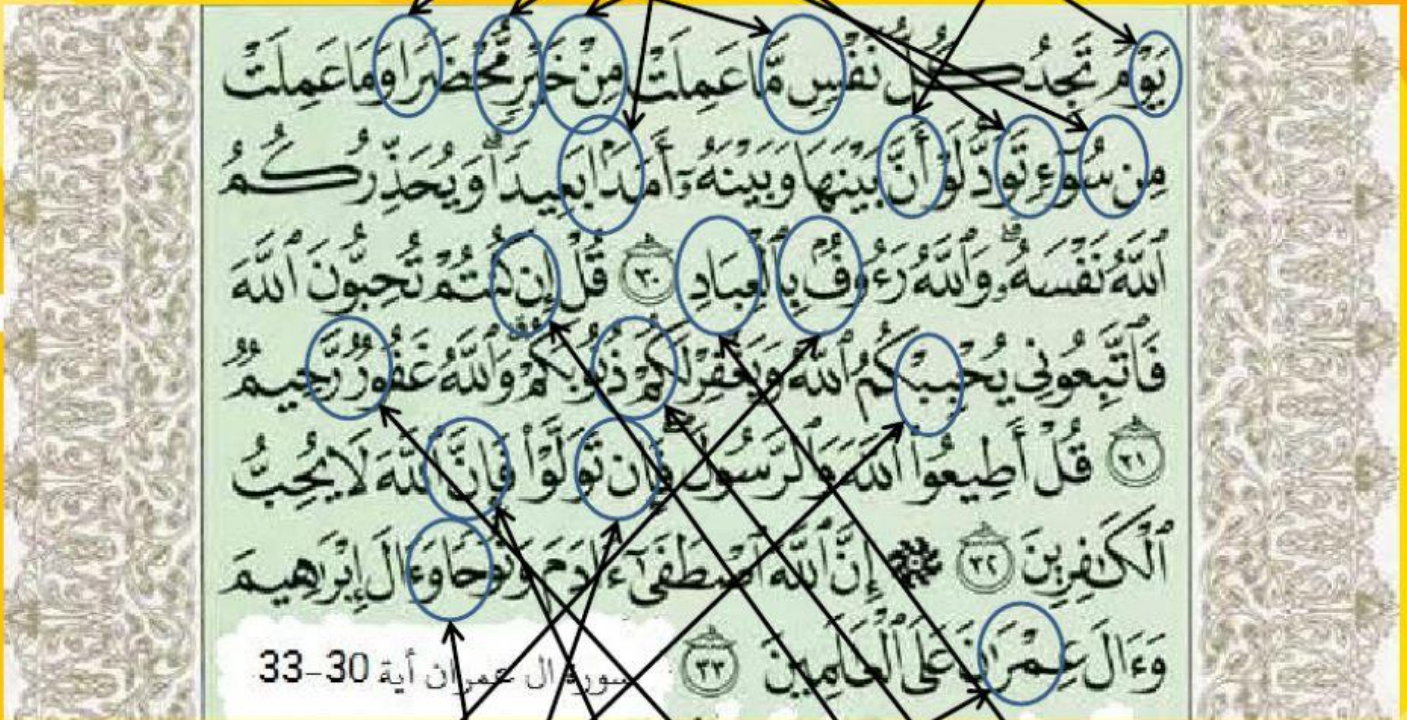 يَوْمَ تَجِدُ كُلُّ نَفْسٍ مَّا عَمِلَتْ مِنْ خَيْرٍ مُّحْضَرًا وَمَا عَمِلَتْ
مِن سُوٓءٍ تَوَدُّ لَوْ أَنَّ بَيْنَهَا وَبَيْنَهُۥٓ أَمَدًۢا بَعِيدًا ۗ وَيُحَذِّرُكُمُ
ٱللَّهُ نَفْسَهُۥ ۗ وَٱللَّهُ رَءُوفٌۢ بِٱلْعِبَادِ ٣٠ قُلْ إِن كُنتُمْ تُحِبُّونَ ٱللَّهَ
فَٱتَّبِعُونِى يُحْبِبْكُمُ ٱللَّهُ وَيَغْفِرْ لَكُمْ ذُنُوبَكُمْ ۗ وَٱللَّهُ غَفُورٌ رَّحِيمٌ
٣١ قُلْ أَطِيعُوا۟ ٱللَّهَ وَٱلرَّسُولَ ۖ فَإِن تَوَلَّوْا۟ فَإِنَّ ٱللَّهَ لَا يُحِبُّ
ٱلْكَـٰفِرِينَ ٣٢ ۞ إِنَّ ٱللَّهَ ٱصْطَفَىٰٓ ءَادَمَ وَنُوحًا وَءَالَ إِبْرَٰهِيمَ
وَءَالَ عِمْرَٰنَ عَلَى ٱلْعَـٰلَمِينَ ٣٣
سورة ال عمران أية 30-33